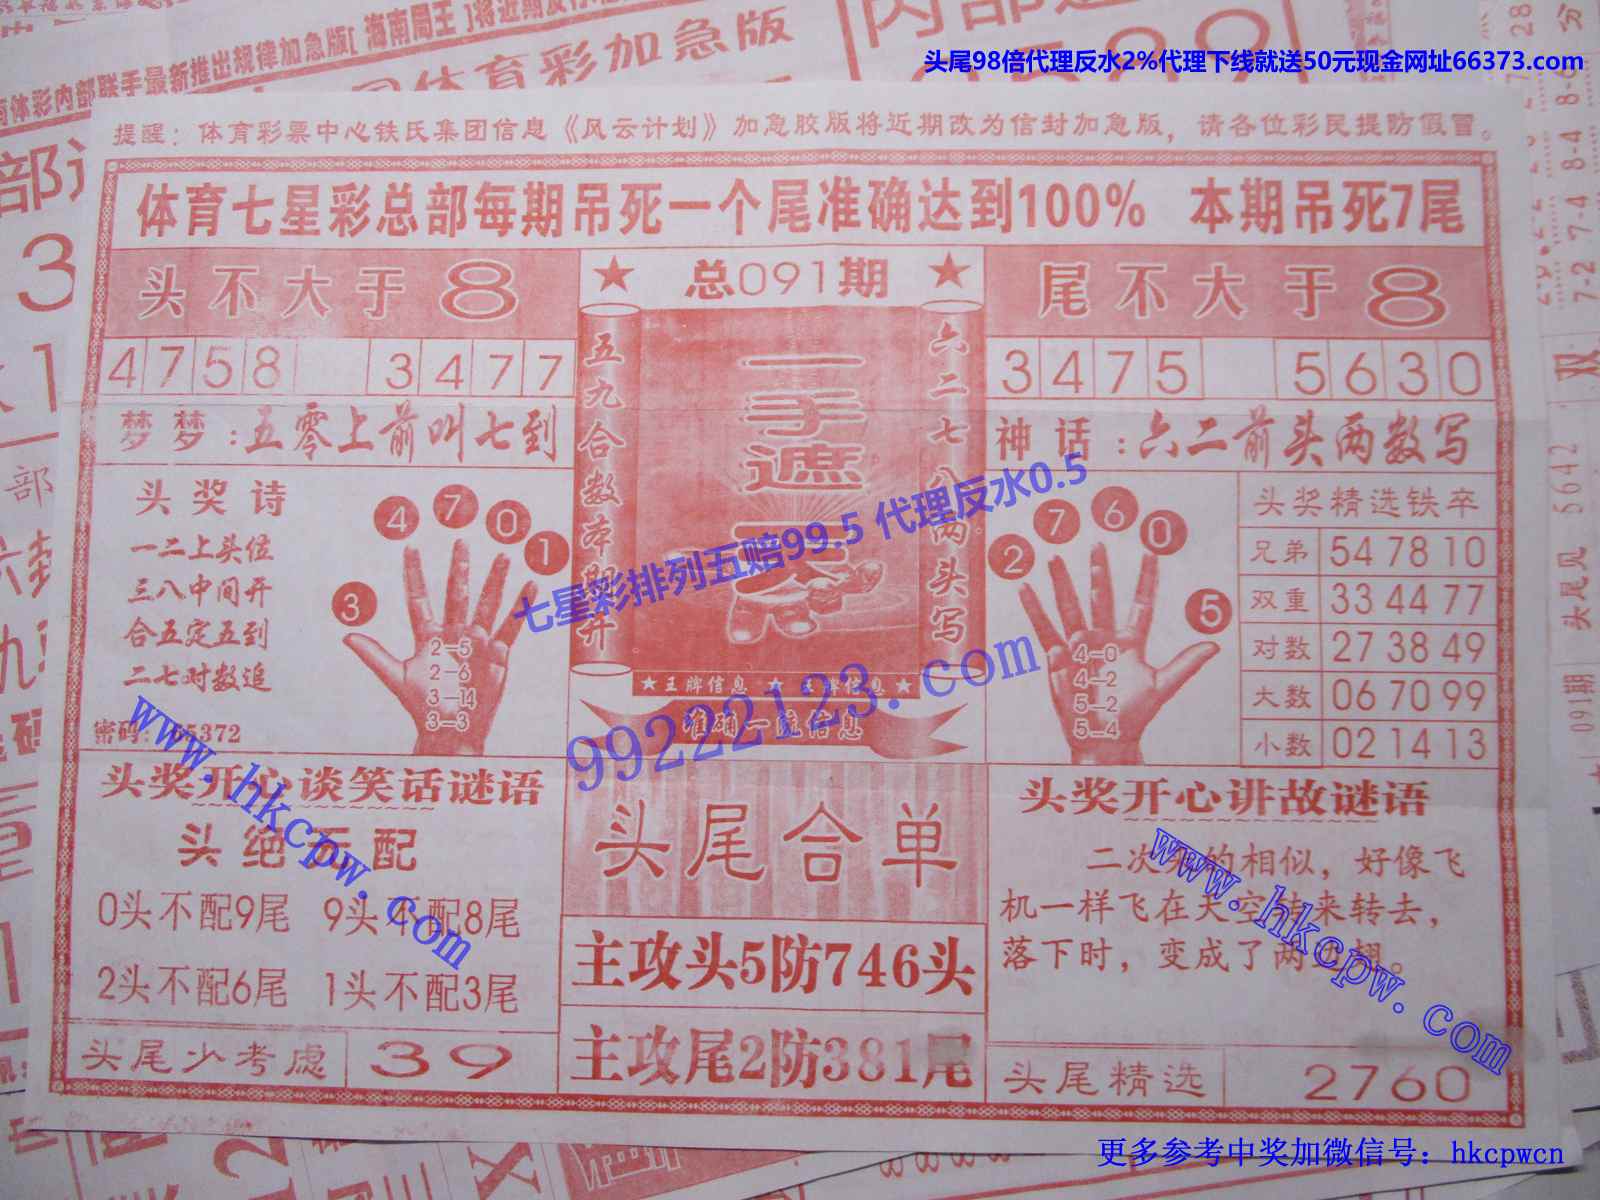 头尾98倍代理反水2%代理下线就送50元现金网址66373.com
提醒：体育彩票中心铁氏集团信息《风云计划》加急胶版将近期改为信封加急版，请各位彩民提防假冒。
体育七星彩总部每期吊死一个尾准确达到100% 本期吊死7尾
头不大于8
★ 总091期 ★
尾不大于8
4758 3477
3475 5630
梦梦：五零上前叫七到
神话：六二前头两数写
五九合数本期开
一手遮天
六二七八两头写
七星彩排列五赔99.5 代理反水0.5
头奖诗
一二上头位
三八中间开
合五定五到
二七对数追
密码：
5372
4 7 0 1
3
2-5
2-6
3-14
3-3
★王牌信息★王牌信息★
准确一流信息
99222123.com
7 6 0
2
5
4-0
4-2
5-2
5-4
头奖精选铁卒
兄弟 54 78 10
双重 33 44 77
对数 27 38 49
大数 06 70 99
小数 02 14 13
www.hkcpw.com
头奖开心谈笑话谜语
头绝不配
0头不配9尾 9头不配8尾
2头不配6尾 1头不配3尾
头尾少考虑 39
头尾合单
主攻头5防746头
主攻尾2防381尾
头奖开心讲故谜语
二次 的相似，好像飞
机一样飞在天空转来转去，
落下时，变成了两边翅。
www.hkcpw.com
头尾精选 2760
更多参考中奖加微信号：hkcpwcn